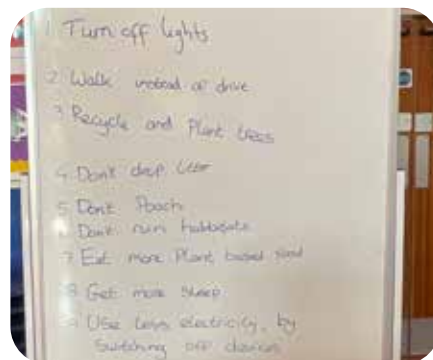 1 Turn off lights
2 Walk instead of drive
3 Recycle and Plant trees
4 Don't drop litter
5 Dont Poach
6 Dont ruin habbitats
7 Eat more Plant based food
8 Get more sleep
9 Use less electricity, by
switching off devices